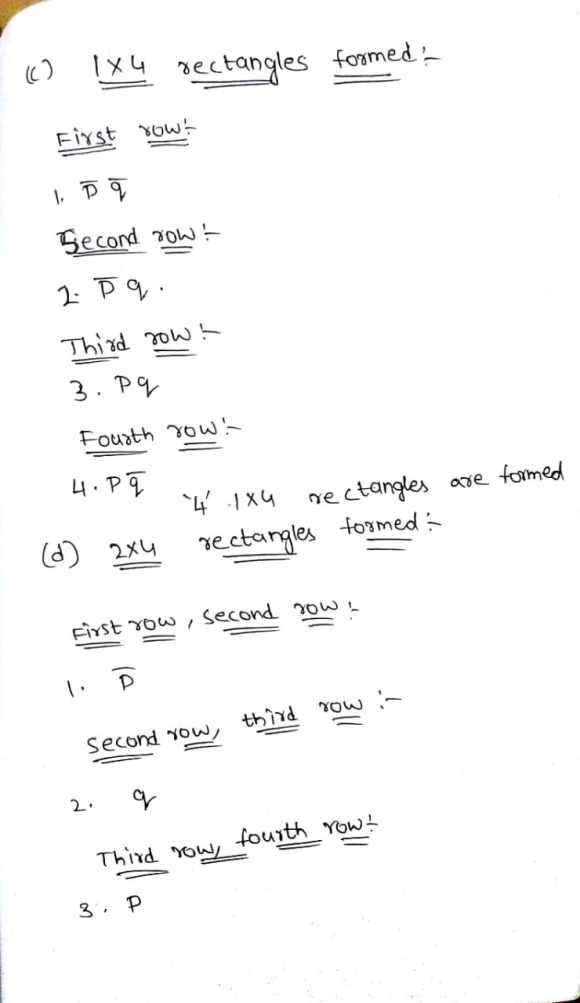 (c) 1x4 rectangles formed:-
First row:-
1. p̄ q̄
Second row:-
2. p̄ q.
Third row:-
3. pq
Fourth row:-
4. p q̄
'4' 1x4 rectangles are formed
(d) 2x4 rectangles formed:-
First row, second row:-
1. p̄
second row, third row:-
2. q
Third row, fourth row:-
3. p